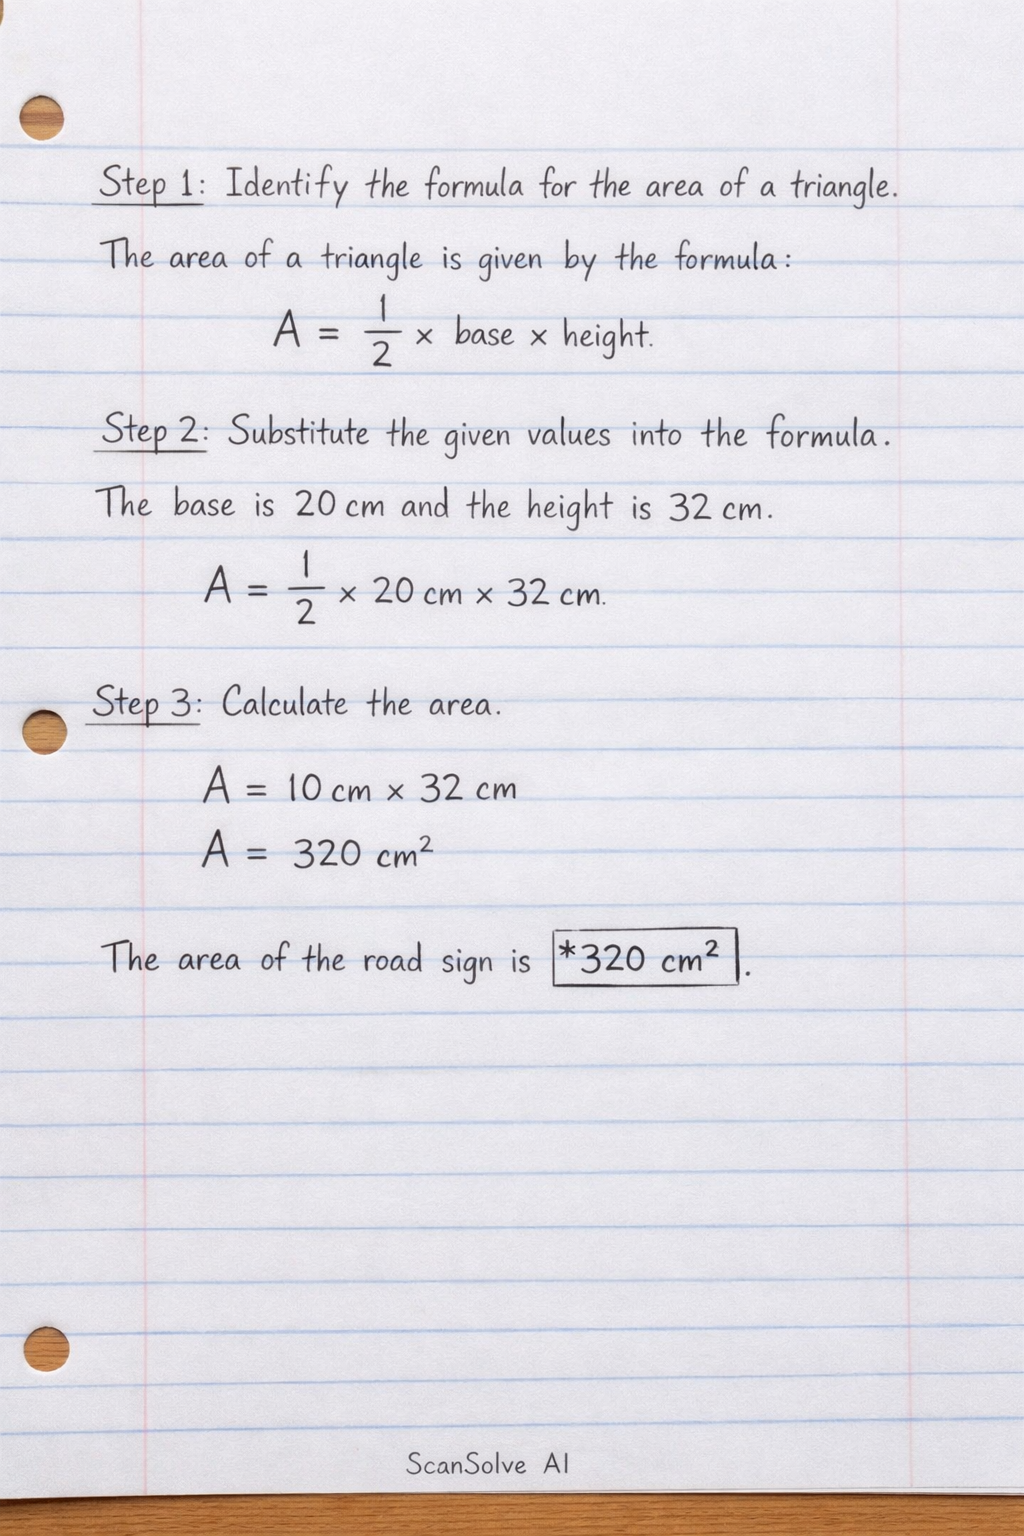 Step 1: Identify the formula for the area of a triangle.
The area of a triangle is given by the formula:
A = 1/2 × base × height.
Step 2: Substitute the given values into the formula.
The base is 20 cm and the height is 32 cm.
A = 1/2 × 20 cm × 32 cm.
Step 3: Calculate the area.
A = 10 cm × 32 cm
A = 320 cm²
The area of the road sign is *320 cm².
ScanSolve AI